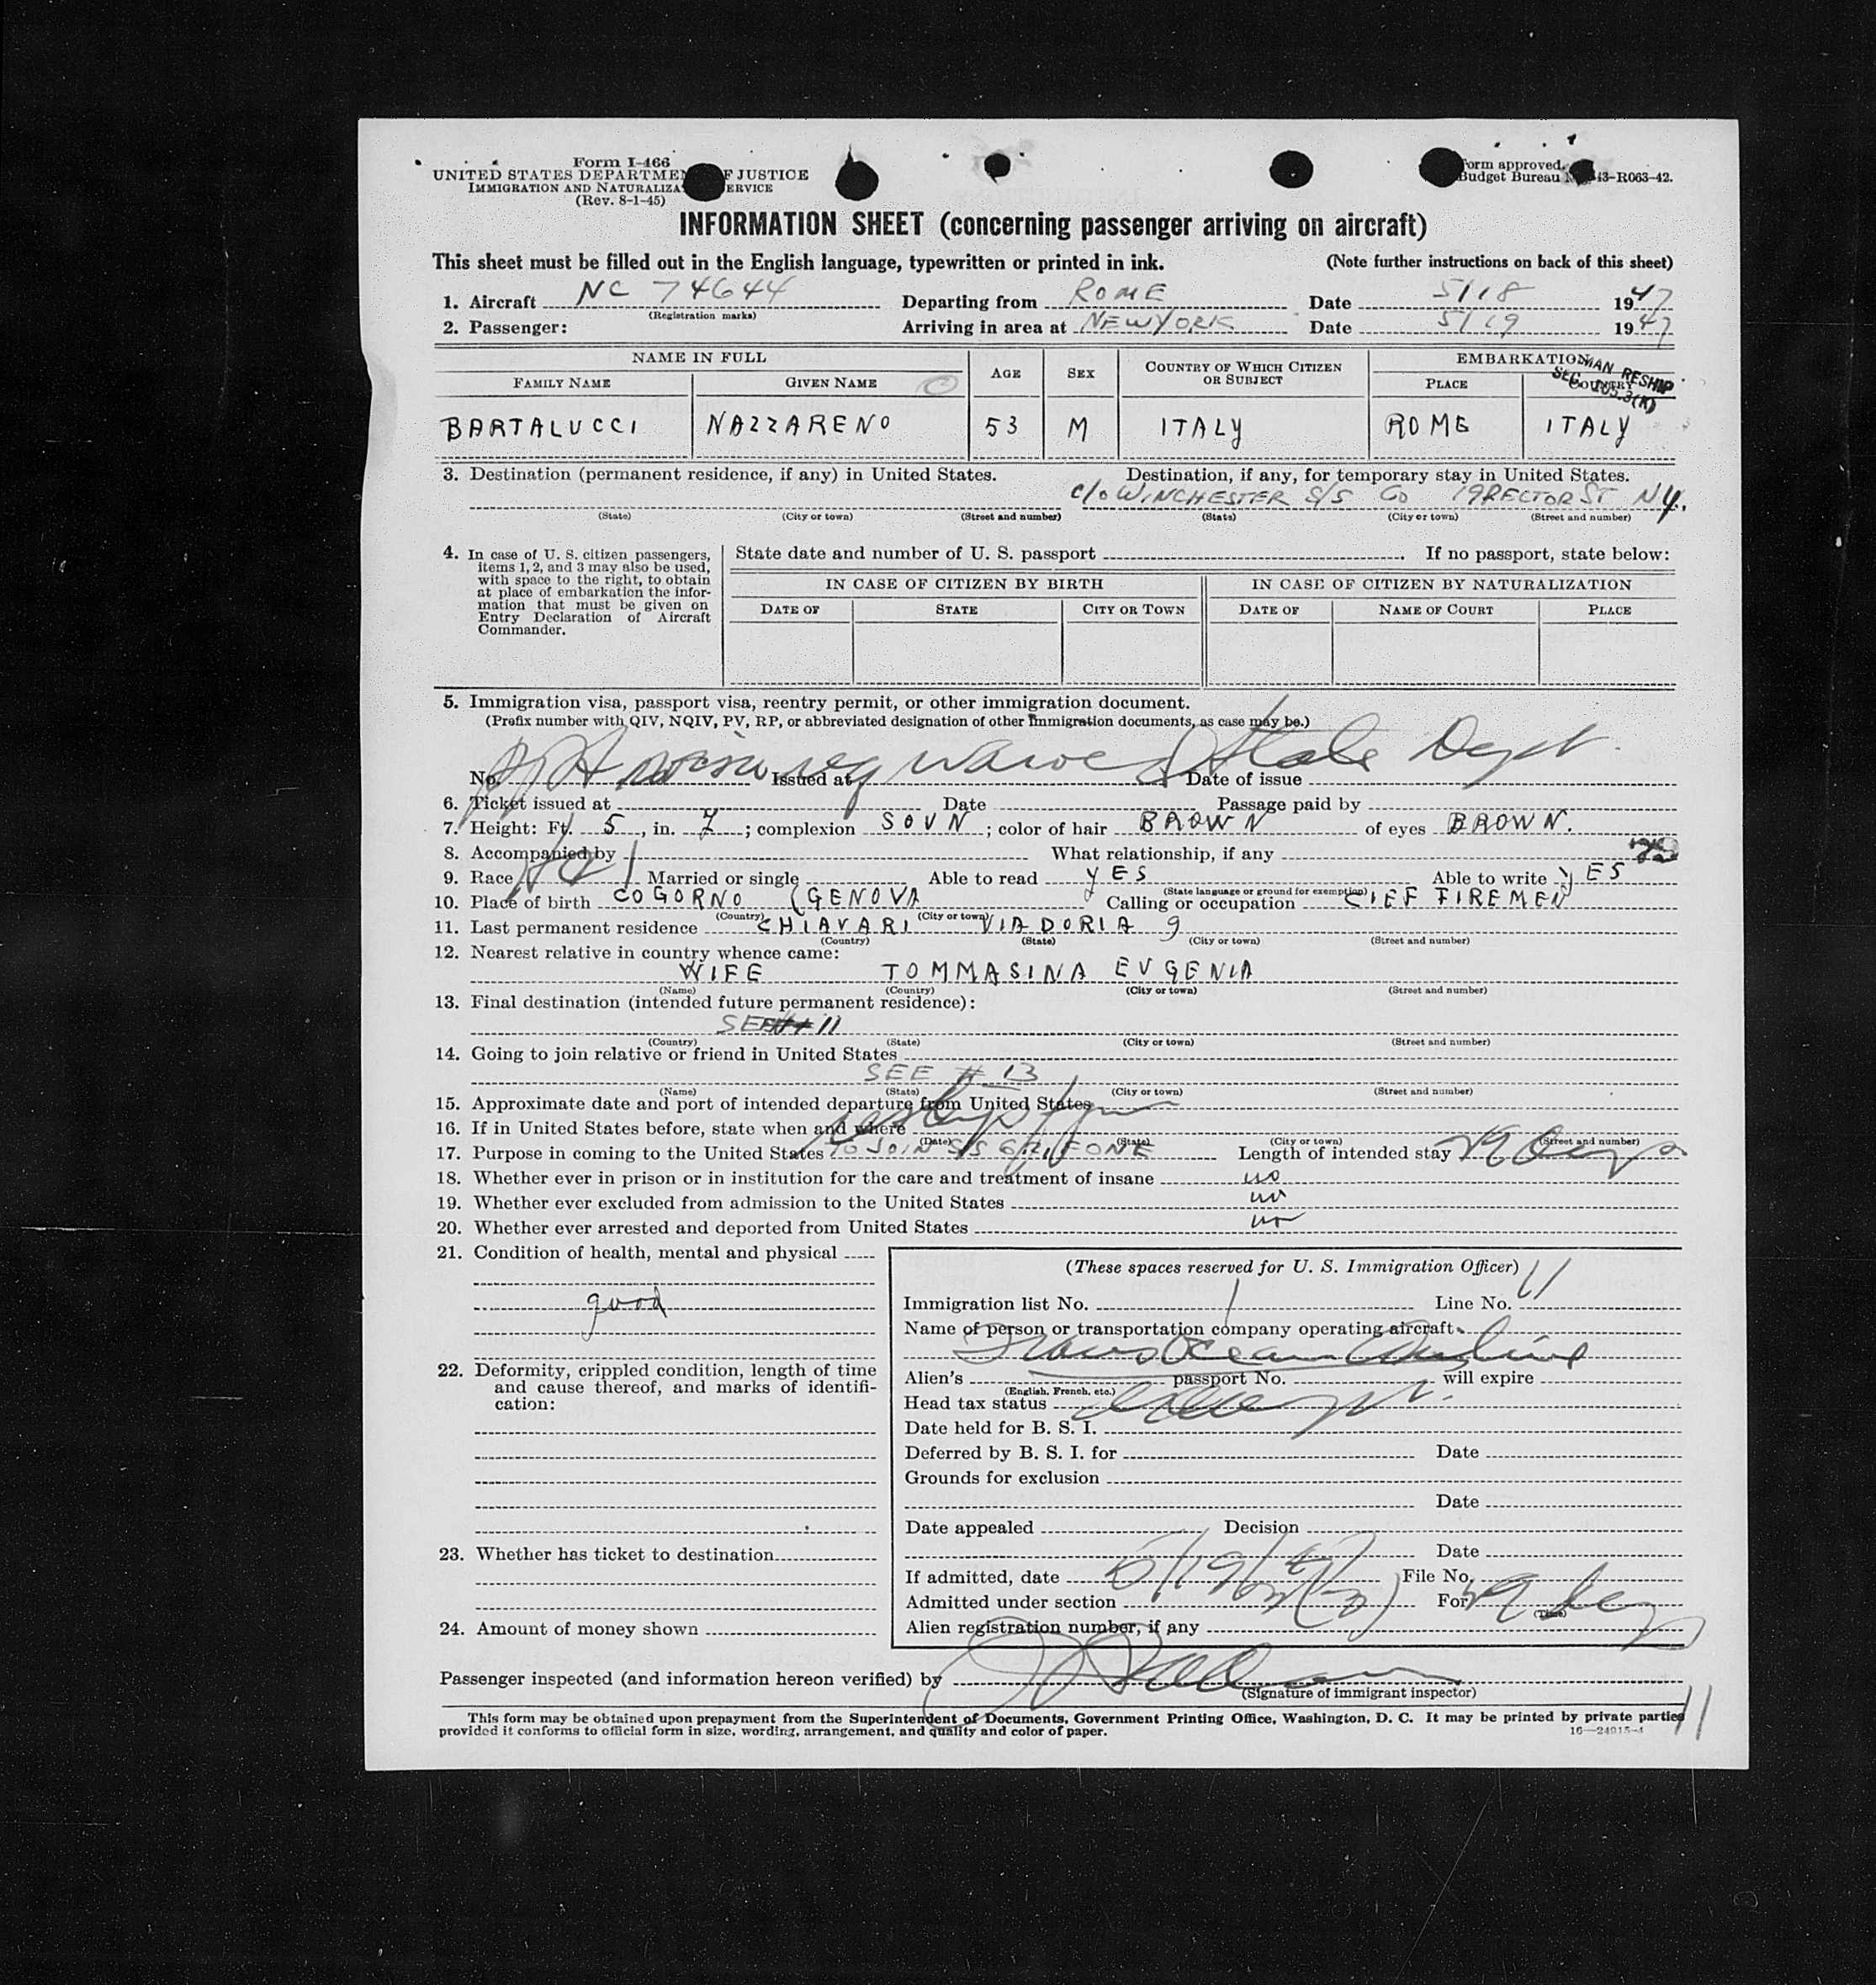 Form I-466
UNITED STATES DEPARTMENT OF JUSTICE
IMMIGRATION AND NATURALIZATION SERVICE
(Rev. 8-1-45)
Form approved.
Budget Bureau 43-R063-42.
INFORMATION SHEET (concerning passenger arriving on aircraft)
This sheet must be filled out in the English language, typewritten or printed in ink. (Note further instructions on back of this sheet)
1. Aircraft NC 74644 Departing from ROME Date 5/18 1947
(Registration marks)
2. Passenger: Arriving in area at NEW YORK Date 5/19 1947
NAME IN FULL AGE SEX COUNTRY OF WHICH CITIZEN OR SUBJECT EMBARKATION
FAMILY NAME GIVEN NAME PLACE COUNTRY
MAN RESHIP
SEC. 105.3(K)
BARTALUCCI NAZZARENO 53 M ITALY ROME ITALY
3. Destination (permanent residence, if any) in United States. Destination, if any, for temporary stay in United States.
c/o WINCHESTER S/S Co 19 RECTOR ST N.Y.
(State) (City or town) (Street and number) (State) (City or town) (Street and number)
4. In case of U. S. citizen passengers, items 1, 2, and 3 may also be used, with space to the right, to obtain at place of embarkation the information that must be given on Entry Declaration of Aircraft Commander.
State date and number of U. S. passport . If no passport, state below:
IN CASE OF CITIZEN BY BIRTH IN CASE OF CITIZEN BY NATURALIZATION
DATE OF STATE CITY OR TOWN DATE OF NAME OF COURT PLACE
5. Immigration visa, passport visa, reentry permit, or other immigration document.
(Prefix number with QIV, NQIV, PV, RP, or abbreviated designation of other immigration documents, as case may be.)
waived State Dept.
No. Issued at Date of issue
6. Ticket issued at Date Passage paid by
7. Height: Ft. 5, in. 7; complexion SOUN; color of hair BROWN of eyes BROWN.
8. Accompanied by What relationship, if any
9. Race Married or single Able to read YES Able to write YES
(State language or ground for exemption)
10. Place of birth COGORNO (GENOVA Calling or occupation CIEF FIREMEN
(Country) (City or town)
11. Last permanent residence CHIAVARI VIA DORIA 9
(Country) (State) (City or town) (Street and number)
12. Nearest relative in country whence came:
WIFE TOMMASINA EUGENIA
(Name) (Country) (City or town) (Street and number)
13. Final destination (intended future permanent residence):
SEE # 11
(Country) (State) (City or town) (Street and number)
14. Going to join relative or friend in United States
SEE # 13
(Name) (State) (City or town) (Street and number)
15. Approximate date and port of intended departure from United States
16. If in United States before, state when and where
(Date) (State) (City or town) (Street and number)
17. Purpose in coming to the United States TO JOIN S/S GRIFONE Length of intended stay 29 days
18. Whether ever in prison or in institution for the care and treatment of insane no
19. Whether ever excluded from admission to the United States no
20. Whether ever arrested and deported from United States no
21. Condition of health, mental and physical
good
22. Deformity, crippled condition, length of time and cause thereof, and marks of identification:
23. Whether has ticket to destination
24. Amount of money shown
(These spaces reserved for U. S. Immigration Officer)
Immigration list No. 1 Line No. 11
Name of person or transportation company operating aircraft
TransOcean Airline
Alien's passport No. will expire
(English, French, etc.)
Head tax status exempt.
Date held for B. S. I.
Deferred by B. S. I. for Date
Grounds for exclusion
Date
Date appealed Decision
Date
If admitted, date 5/19/47 File No.
Admitted under section For 29 days
(Time)
Alien registration number, if any
Passenger inspected (and information hereon verified) by
(Signature of immigrant inspector)
This form may be obtained upon prepayment from the Superintendent of Documents, Government Printing Office, Washington, D. C. It may be printed by private parties
provided it conforms to official form in size, wording, arrangement, and quality and color of paper.
16—24915-4
11